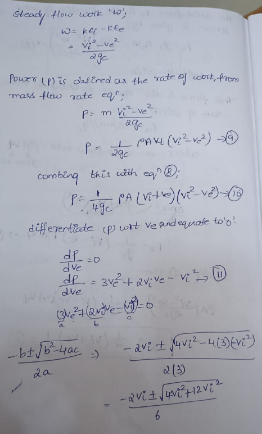 Steady flow work 'w';
W = KEi - KEe
= Vi² - Ve² / 2gc
Power (P) is defined as the rate of work, from
mass flow rate eqⁿ;
P = m Vi² - Ve² / 2gc
P = 1/2gc ρAVt (Vi² - Ve²) → ⑨
combing this with eqⁿ ⑧;
P = 1/4gc ρA (Vi + Ve) (Vi² - Ve²) → ⑩
differentiate (P) wrt Ve and equate to '0'
dP/dVe = 0
dP/dVe = 3Ve² + 2ViVe - Vi² → ⑪
(3)Ve² + (2Vi)Ve - (Vi²) = 0
a b c
-b ± √b² - 4ac / 2a ⇒ -2Vi ± √4Vi² - 4(3)(-Vi²) / 2(3)
= -2Vi ± √4Vi² + 12Vi² / 6